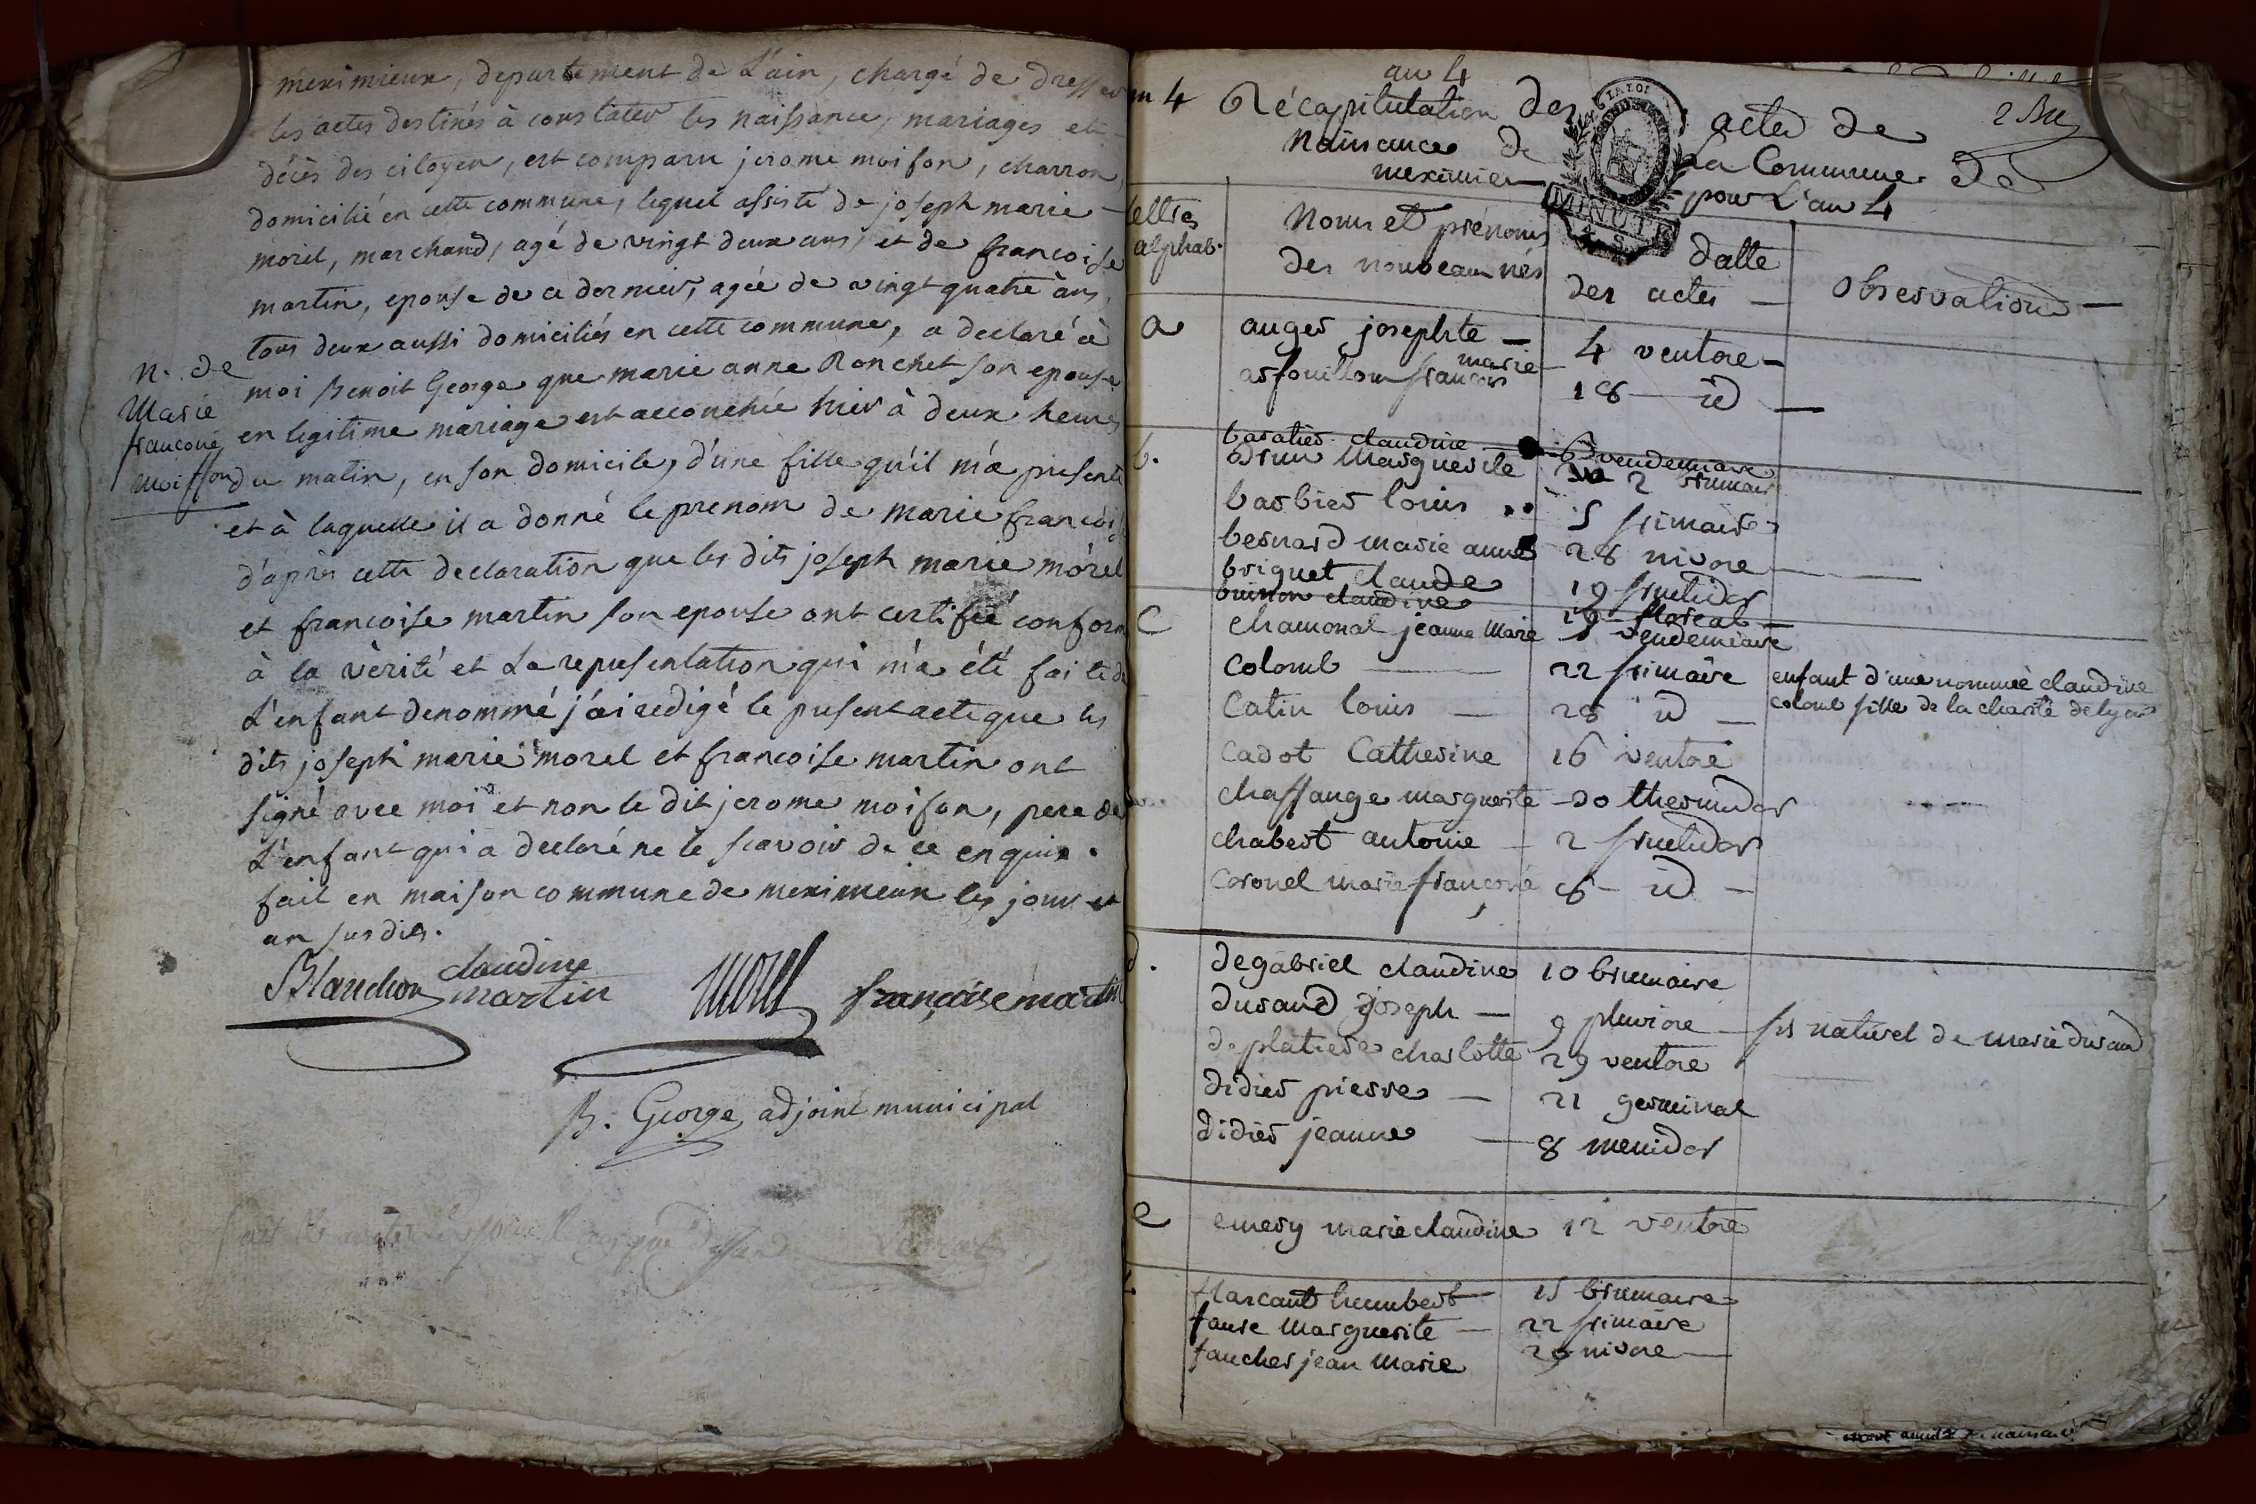 meximieux, departement de L'ain, chargé de dresser
les actes destinés à constater les naissance, mariages et
décès des citoyen, est comparu jerome moifon, charron,
domicilié en cette commune, lequel assisté de joseph marie
morel, marchand, agé de vingt deux ans, et de francoise
martin, epouse de ce dernier, agée de vingt quatre ans,
tous deux aussi domiciliés en cette commune, a declaré à
moi Benoit George que marie anne Ronchet son epouse
en legitime mariage est accouchée hier à deux heures
du matin, en son domicile, d'une fille qu'il m'a presenté
et à laquelle il a donné le prenom de marie francoise
d'après cette declaration que les dits joseph marie morel
et francoise martin son epouse ont certifiée conforme
à la vérité et La representation qui m'a été faite de
L'enfant denommé j'ai redigé le present acte que les
dits joseph marie morel et francoise martin ont
signé avec moi et non le dit jerome moifon, pere de
L'enfant qui a declaré ne le scavoir de ce enquis.
fait en maison commune de meximieux les jour et
an susdits.
N. de
Marie
francoise
moiffon
Blanchon claudine martin morel françoise martin
B. George, adjoint municipal
an 4
an 4 Récapitulation Des actes de
Naissance de La Commune de
meximieux pour L'an 4
LA LOI
MINUTE
4 S
lettres alphab.
Noms et prénoms des nouveau nés
Datte des actes
Observations
a auger josephte 4 ventose
arfouillon francois marie 18 id
b. baratier claudine 6 vendemiaire
brun Marguerite 2 brumaire
barbier louis 5 frimaire
bernard marie anne 28 nivose
briquet claude 19 fructidor
buisson claudine 19 floreal
C chamonal jeanne Marie vendemiaire
Colomb 22 frimaire enfant d'une nommée claudine
colomb fille de la charité de lyon
Catin louis 28 id
Cadot Catherine 16 ventose
chaffange marguerite 30 thermidor
chabert antoine 2 fructidor
Coronel marie françoise 8 id
d. degabriel claudine 10 brumaire
durand joseph 9 pluviose fils naturel de marie durand
deplatiere charlotte 29 ventose
didier pierre 21 germinal
didier jeanne 8 messidor
e emery marie claudine 12 ventose
flarcant humbert 15 brumaire
faure Marguerite 22 frimaire
faucher jean Marie 29 nivose